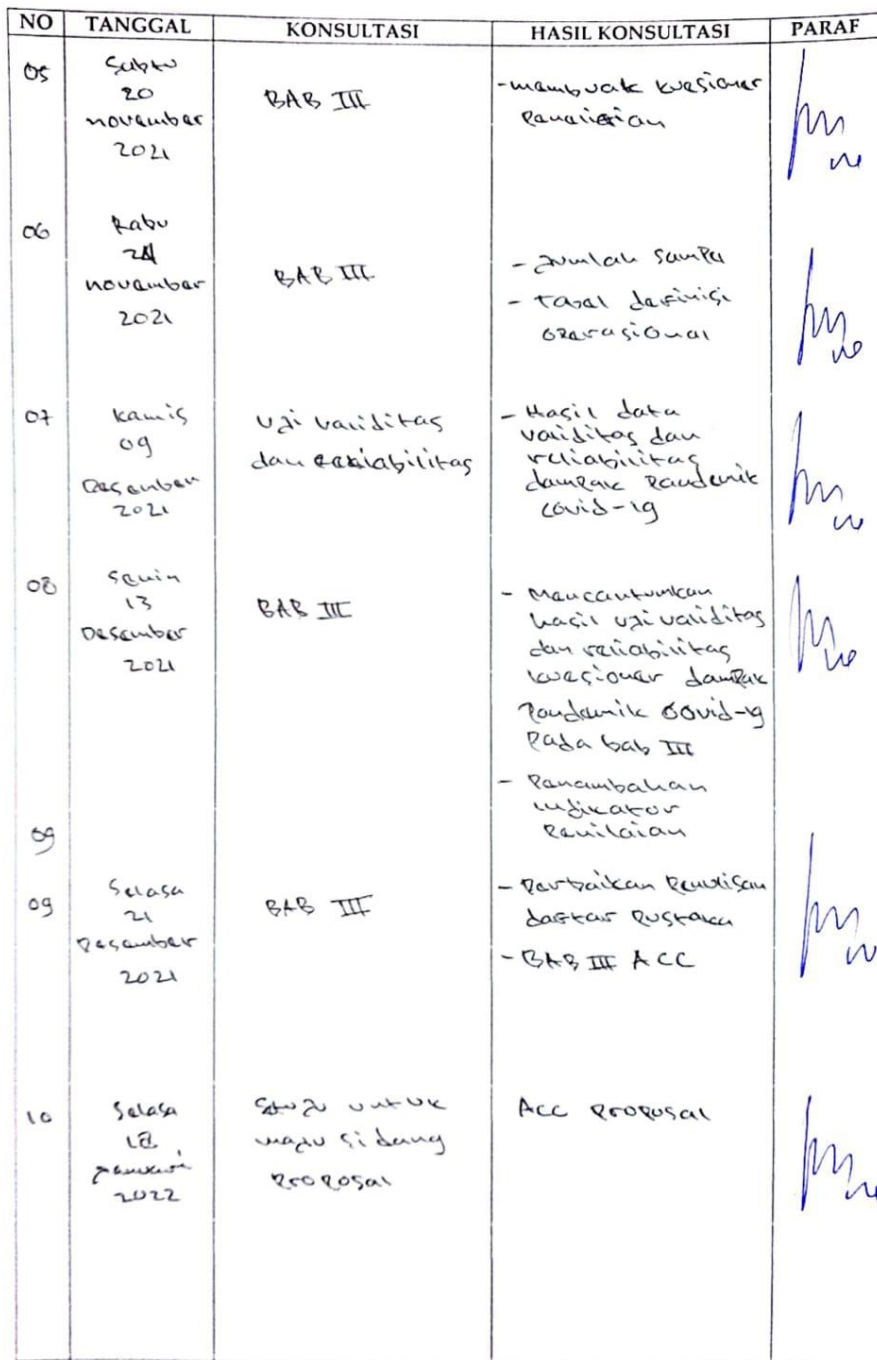 NO TANGGAL KONSULTASI HASIL KONSULTASI PARAF
05 Sabtu 20 november 2021
BAB III
- membuat kuesioner
penelitian
06 Rabu 24 november 2021
BAB III
- Jumlah Sampel
- Tabel definisi
operasional
07 Kamis 09 Desember 2021
Uji validitas
dan reliabilitas
- Hasil data
validitas dan
reliabilitas
dampak pandemik
covid-19
08 Senin 13 Desember 2021
BAB III
- Mencantumkan
hasil uji validitas
dan reliabilitas
kuesioner dampak
Pandemik Covid-19
Pada bab III
- Penambahan
indikator
Penilaian
09
09 Selasa 21 Desember 2021
BAB III
- Perbaikan Penulisan
daftar Pustaka
- BAB III ACC
10 Selasa 18 Januari 2022
Setuju untuk
maju sidang
Proposal
ACC Proposal